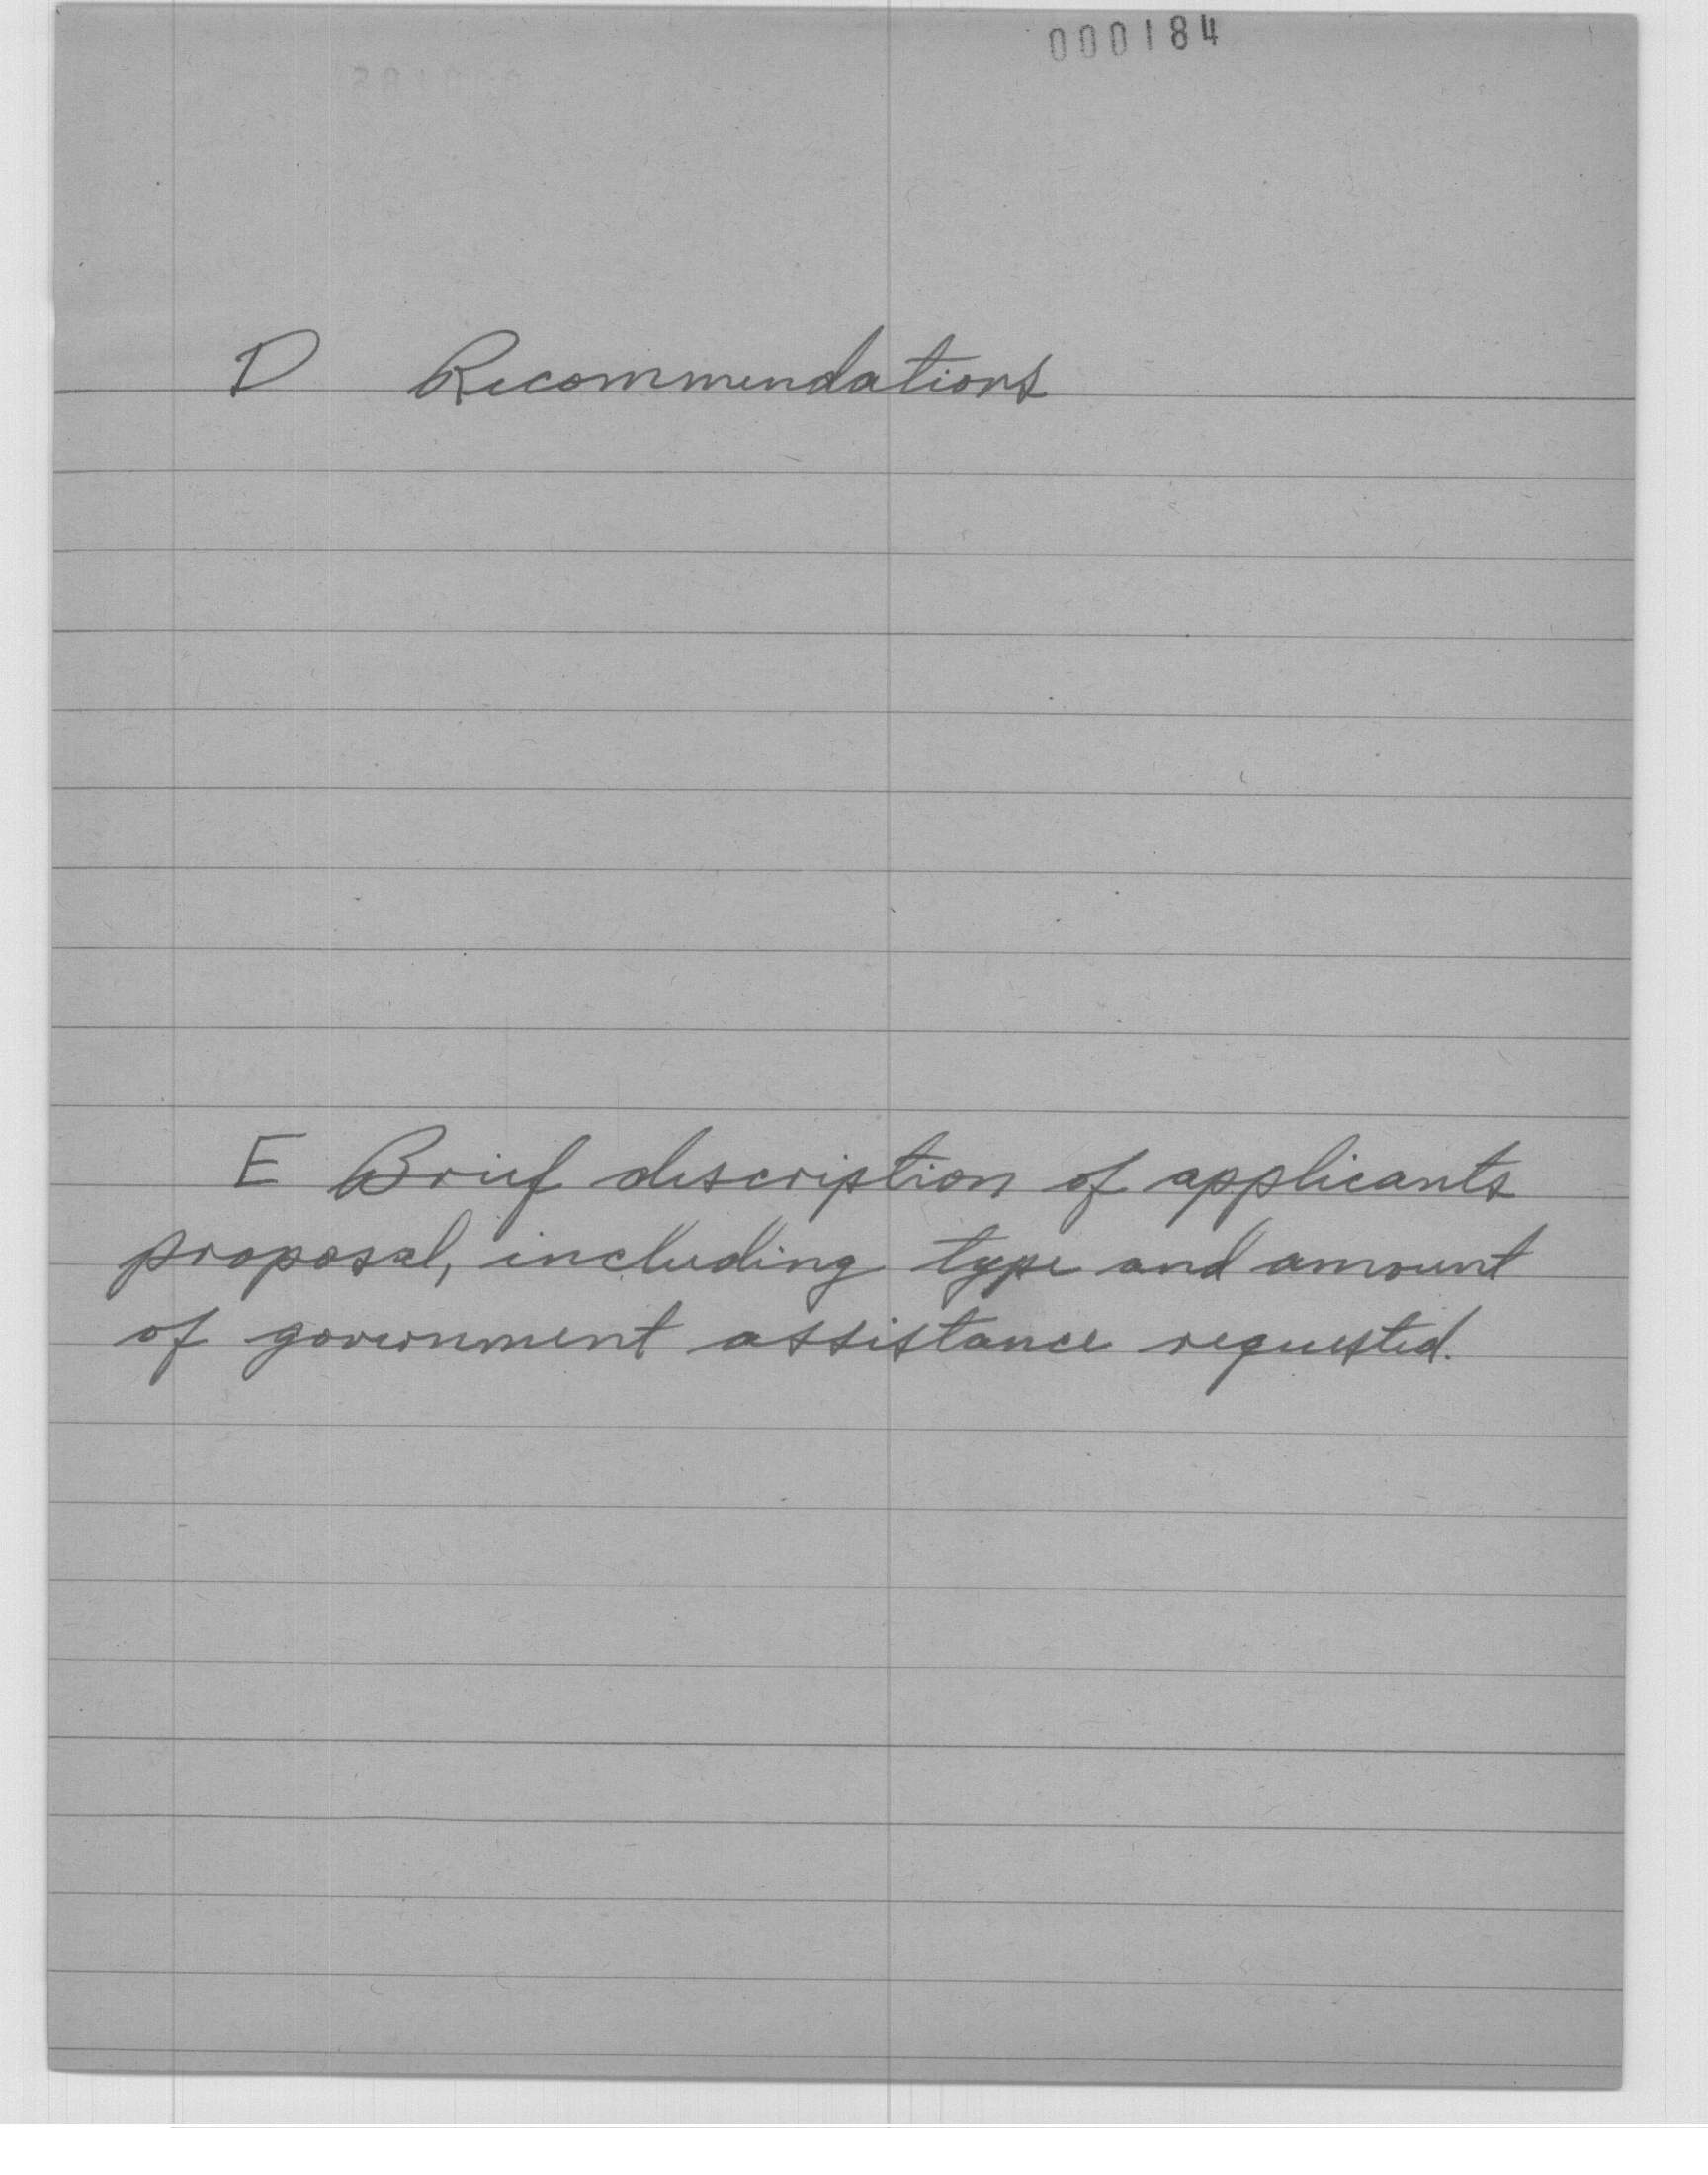 000184
D Recommendations
E Brief description of applicants
proposal, including type and amount
of government assistance requested.